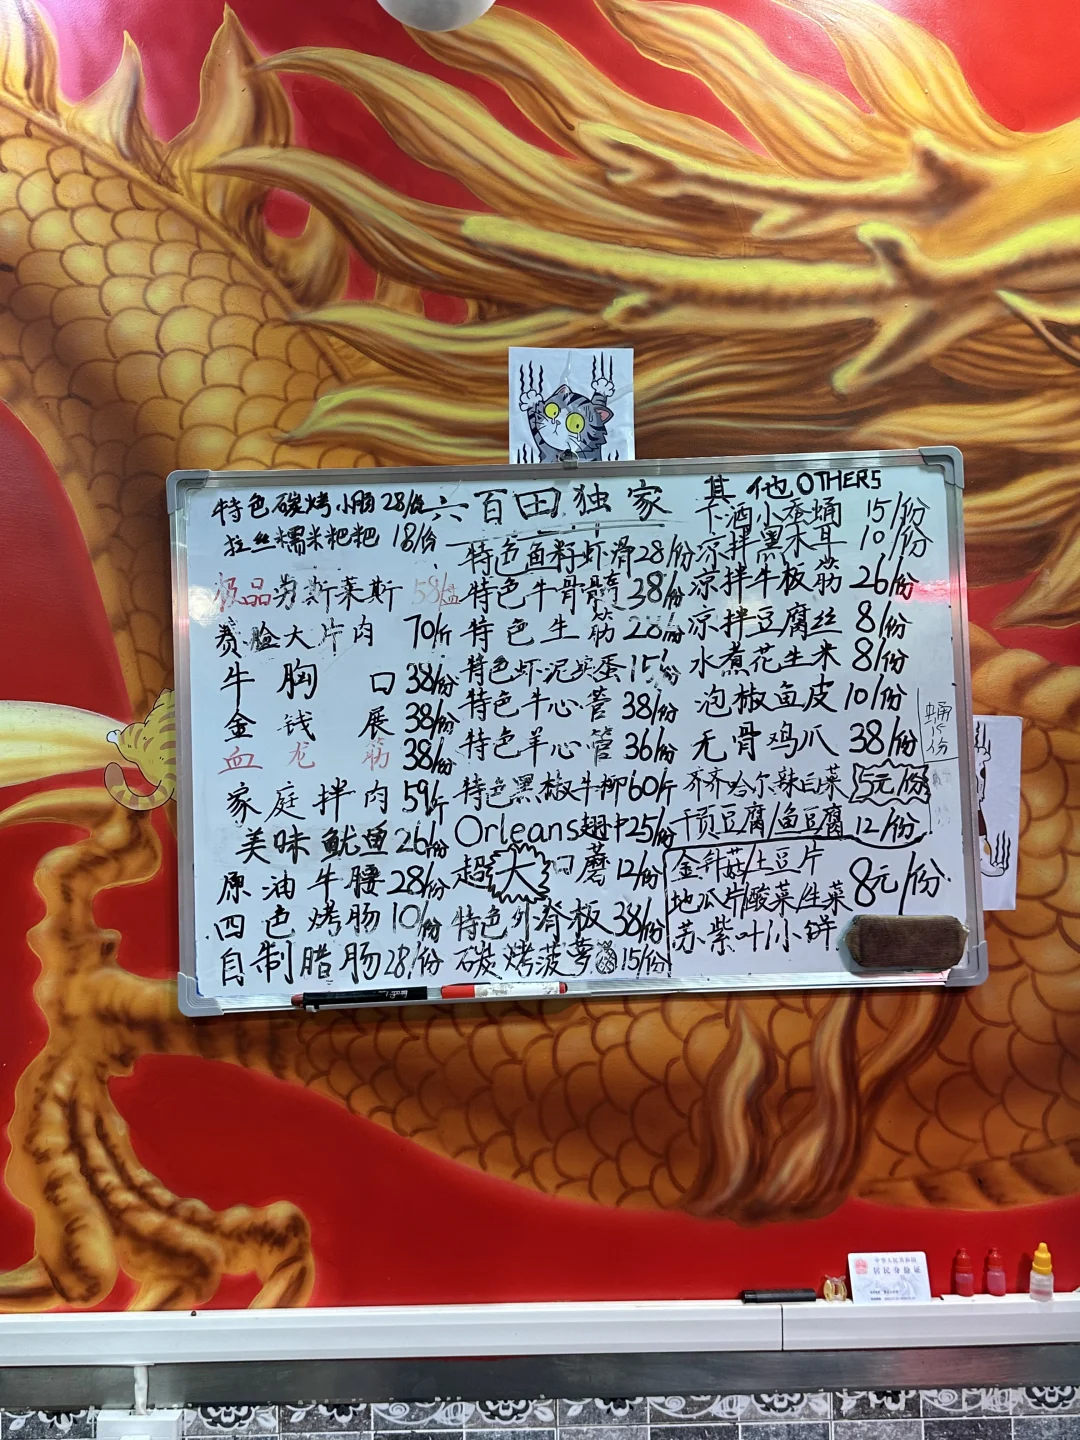 特色碳烤小肠 28/份
拉丝糯米粑粑 18/份
极品劳斯莱斯 58/盘
赛脸大片肉 70/斤
牛胸口 38/份
金钱展 38/份
血龙筋 38/份
家庭拌肉 59/斤
美味鱿鱼 26/份
原油牛腰 28/份
四色烤肠 10/份
自制腊肠 28/份
六百田独家
特色鱼籽虾滑 28/份
特色牛骨髓 38/份
特色生筋 28/份
特色虾泥卖蛋 15/份
特色牛心管 38/份
特色羊心管 36/份
特色黑椒牛柳 60/斤
Orleans翅中 25/份
超大口蘑 12/份
特色外脊板 38/份
碳烤菠萝 15/份
其他 OTHERS
下酒小蚕蛹 15/份
凉拌黑木耳 10/份
凉拌牛板筋 26/份
凉拌豆腐丝 8/份
水煮花生米 8/份
泡椒鱼皮 10/份
无骨鸡爪 38/份
齐齐哈尔辣白菜 15元/份
干贡豆腐/鱼豆腐 12/份
金针菇/土豆片
地瓜片/酸菜/生菜 8元/份
苏紫叶/小饼
中华人民共和国
居民身份证